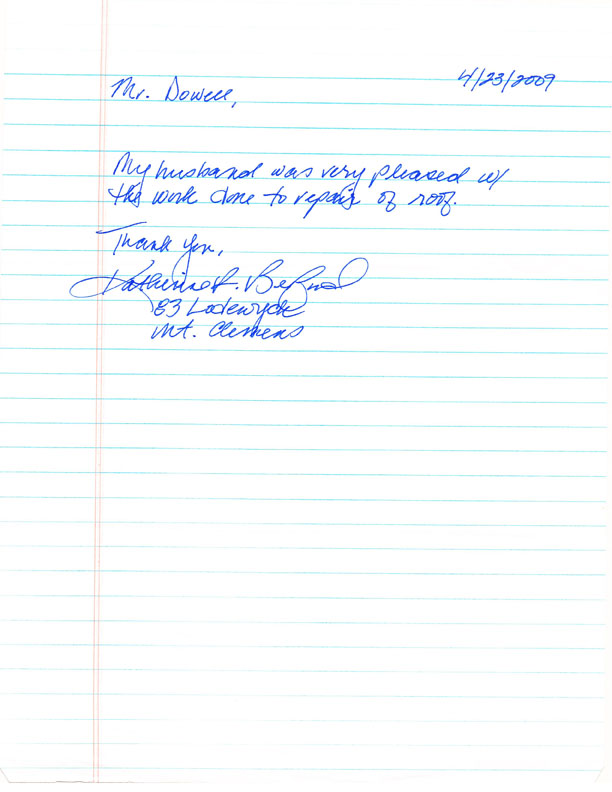 4/23/2009
Mr. Dowell,
My husband was very pleased w/
the work done to repair of roof.
Thank You,
Katherine R.
83 Lodewyck
Mt. Clemens